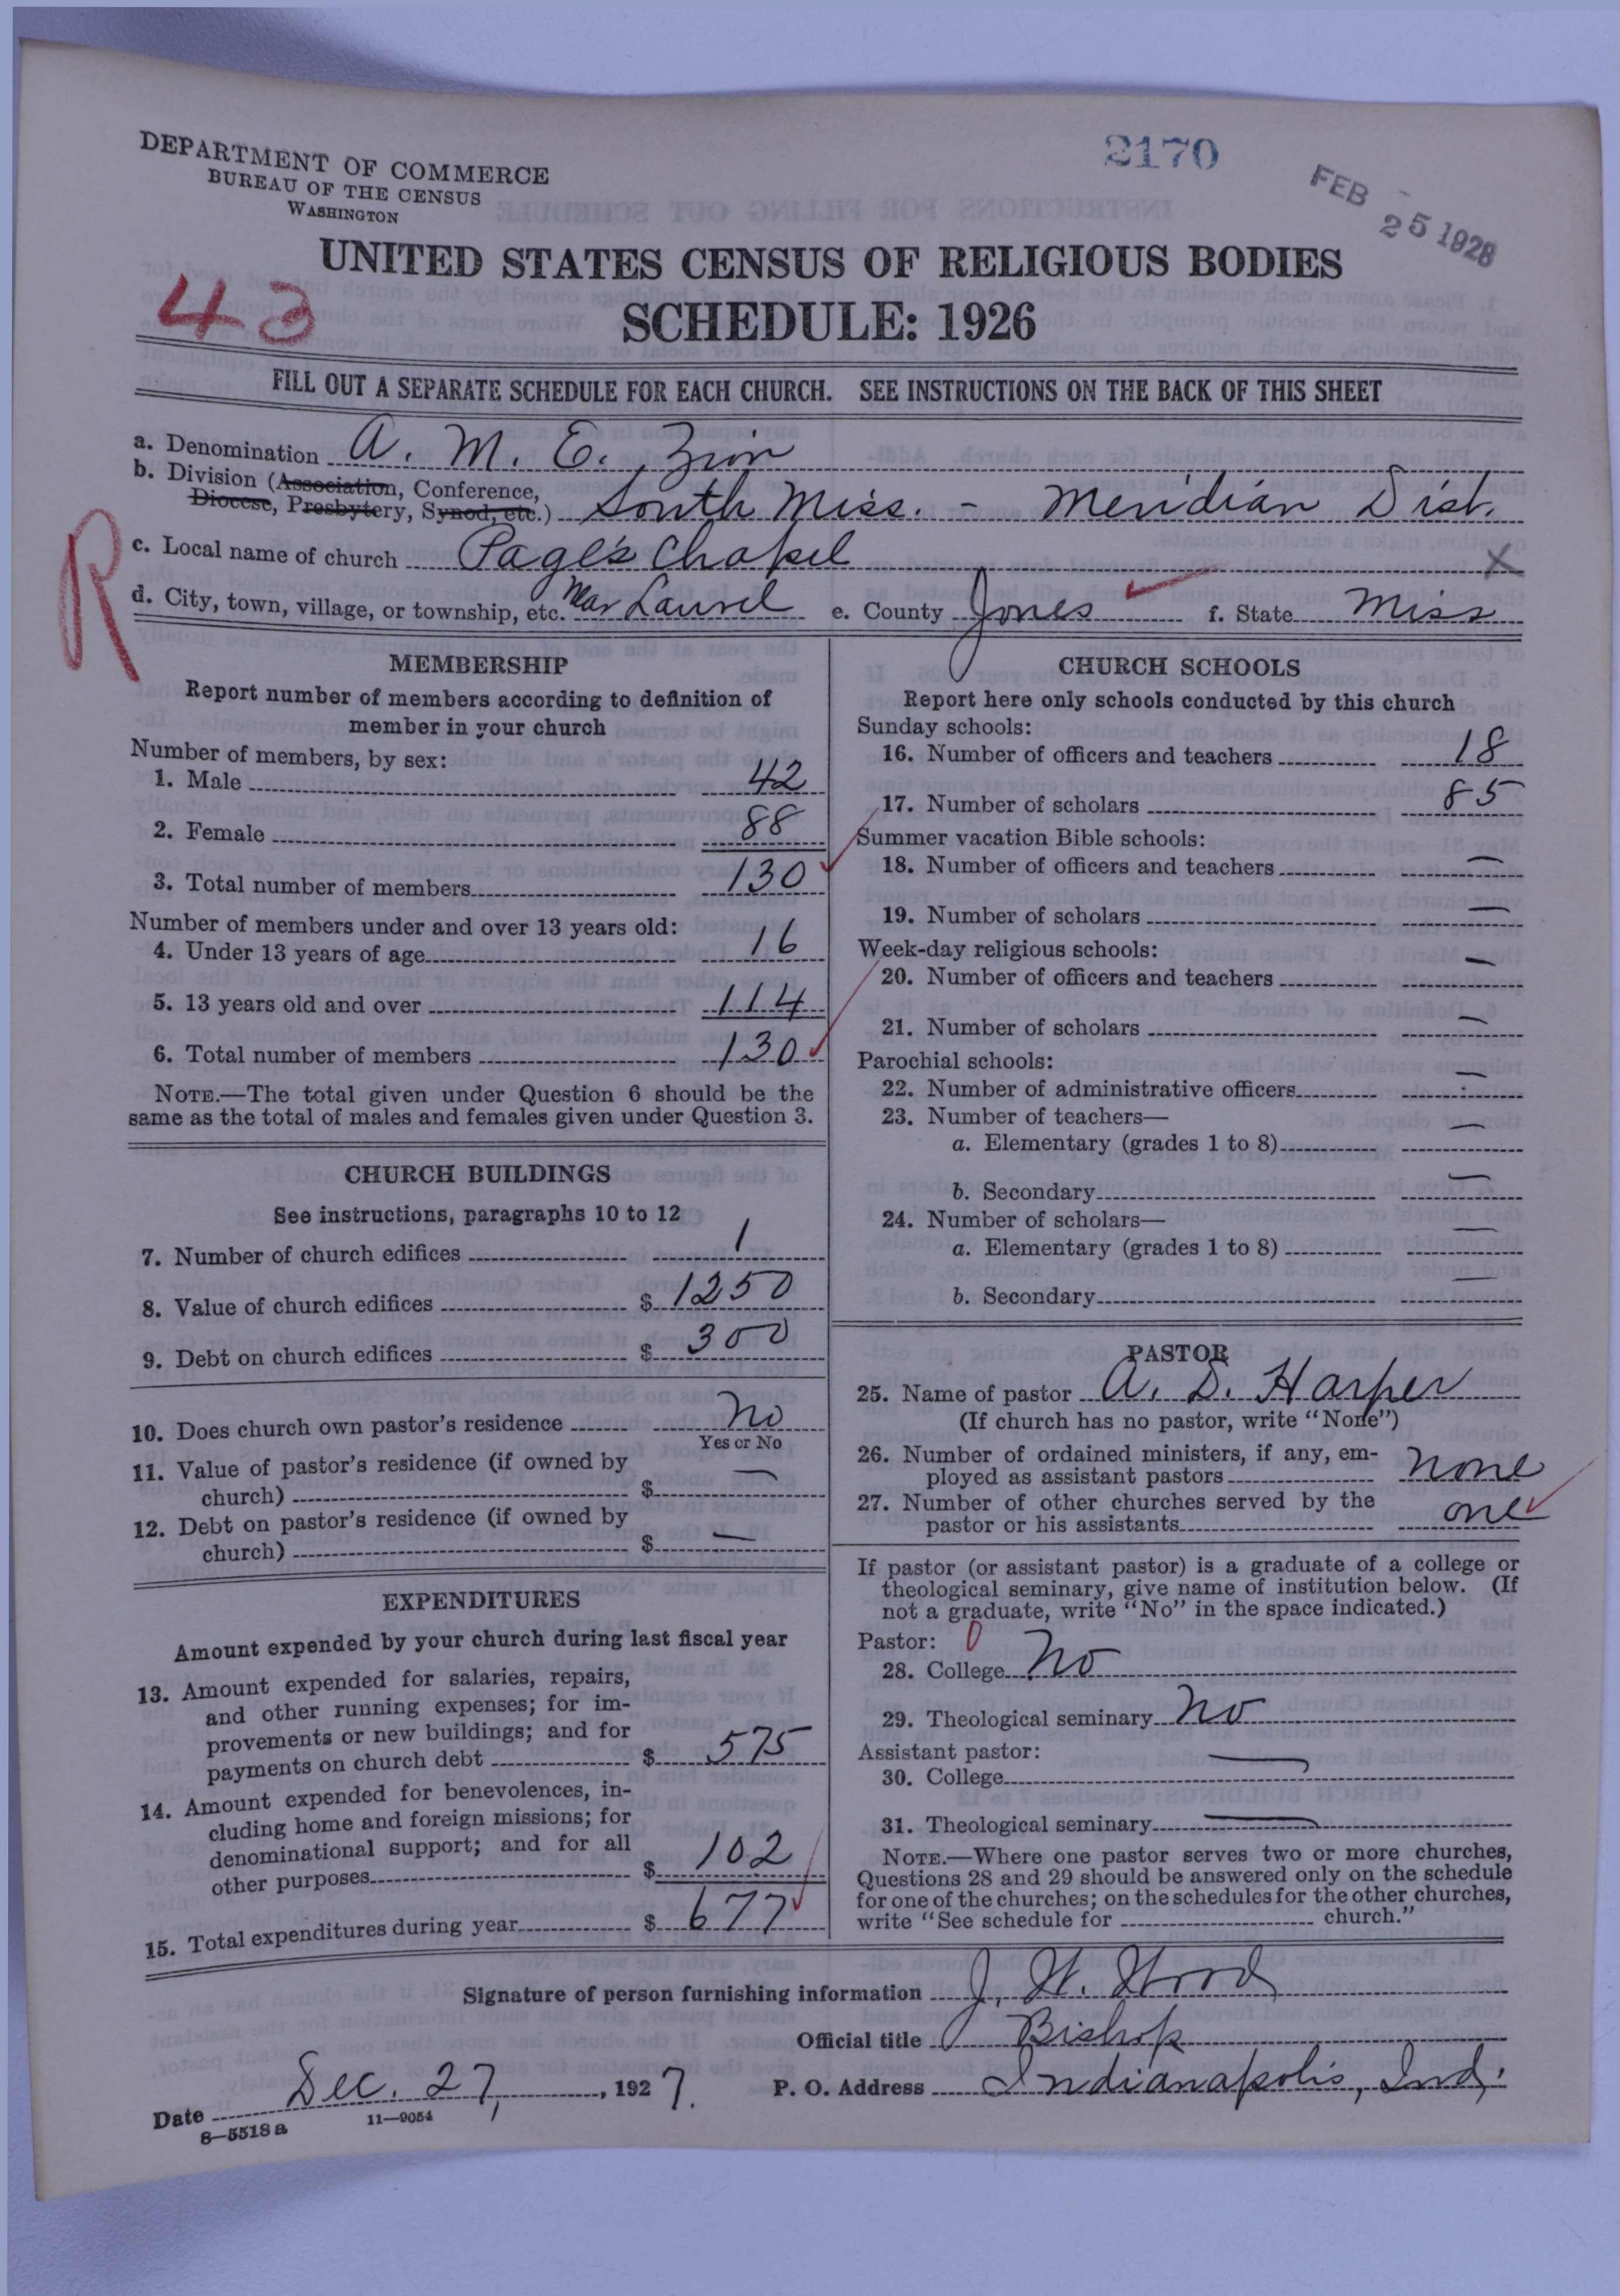 DEPARTMENT OF COMMERCE
BUREAU OF THE CENSUS
WASHINGTON
2170
FEB 25 1928
UNITED STATES CENSUS OF RELIGIOUS BODIES
43
SCHEDULE: 1926
FILL OUT A SEPARATE SCHEDULE FOR EACH CHURCH. SEE INSTRUCTIONS ON THE BACK OF THIS SHEET
a. Denomination A. M. E. Zion
b. Division (Association, Conference,
Diocese, Presbytery, Synod, etc.) South Miss. - Meridian Dist.
R
c. Local name of church Page's Chapel X
d. City, town, village, or township, etc. Laurel e. County Jones f. State Miss
MEMBERSHIP
Report number of members according to definition of
member in your church
Number of members, by sex:
1. Male 42
2. Female 88
3. Total number of members 130
Number of members under and over 13 years old:
4. Under 13 years of age 16
5. 13 years old and over 114
6. Total number of members 130
NOTE.—The total given under Question 6 should be the
same as the total of males and females given under Question 3.
CHURCH BUILDINGS
See instructions, paragraphs 10 to 12
7. Number of church edifices 1
8. Value of church edifices $ 1250
9. Debt on church edifices $ 300
10. Does church own pastor's residence No
Yes or No
11. Value of pastor's residence (if owned by
church) $ —
12. Debt on pastor's residence (if owned by
church) $ —
EXPENDITURES
Amount expended by your church during last fiscal year
13. Amount expended for salaries, repairs,
and other running expenses; for im-
provements or new buildings; and for
payments on church debt $ 575
14. Amount expended for benevolences, in-
cluding home and foreign missions; for
denominational support; and for all
other purposes $ 102
15. Total expenditures during year $ 677
CHURCH SCHOOLS
Report here only schools conducted by this church
Sunday schools:
16. Number of officers and teachers 18
17. Number of scholars 85
Summer vacation Bible schools:
18. Number of officers and teachers —
19. Number of scholars —
Week-day religious schools:
20. Number of officers and teachers —
21. Number of scholars —
Parochial schools:
22. Number of administrative officers —
23. Number of teachers—
a. Elementary (grades 1 to 8) —
b. Secondary —
24. Number of scholars—
a. Elementary (grades 1 to 8) —
b. Secondary —
PASTOR
25. Name of pastor A. D. Harper
(If church has no pastor, write "None")
26. Number of ordained ministers, if any, em-
ployed as assistant pastors None
27. Number of other churches served by the
pastor or his assistants one
If pastor (or assistant pastor) is a graduate of a college or
theological seminary, give name of institution below. (If
not a graduate, write "No" in the space indicated.)
Pastor: 0
28. College No
29. Theological seminary No
Assistant pastor:
30. College —
31. Theological seminary —
NOTE.—Where one pastor serves two or more churches,
Questions 28 and 29 should be answered only on the schedule
for one of the churches; on the schedules for the other churches,
write "See schedule for church."
Signature of person furnishing information J. W. Wood
Official title Bishop
Date Dec. 27, 1927. P. O. Address Indianapolis, Ind.
8—5518a 11—9054